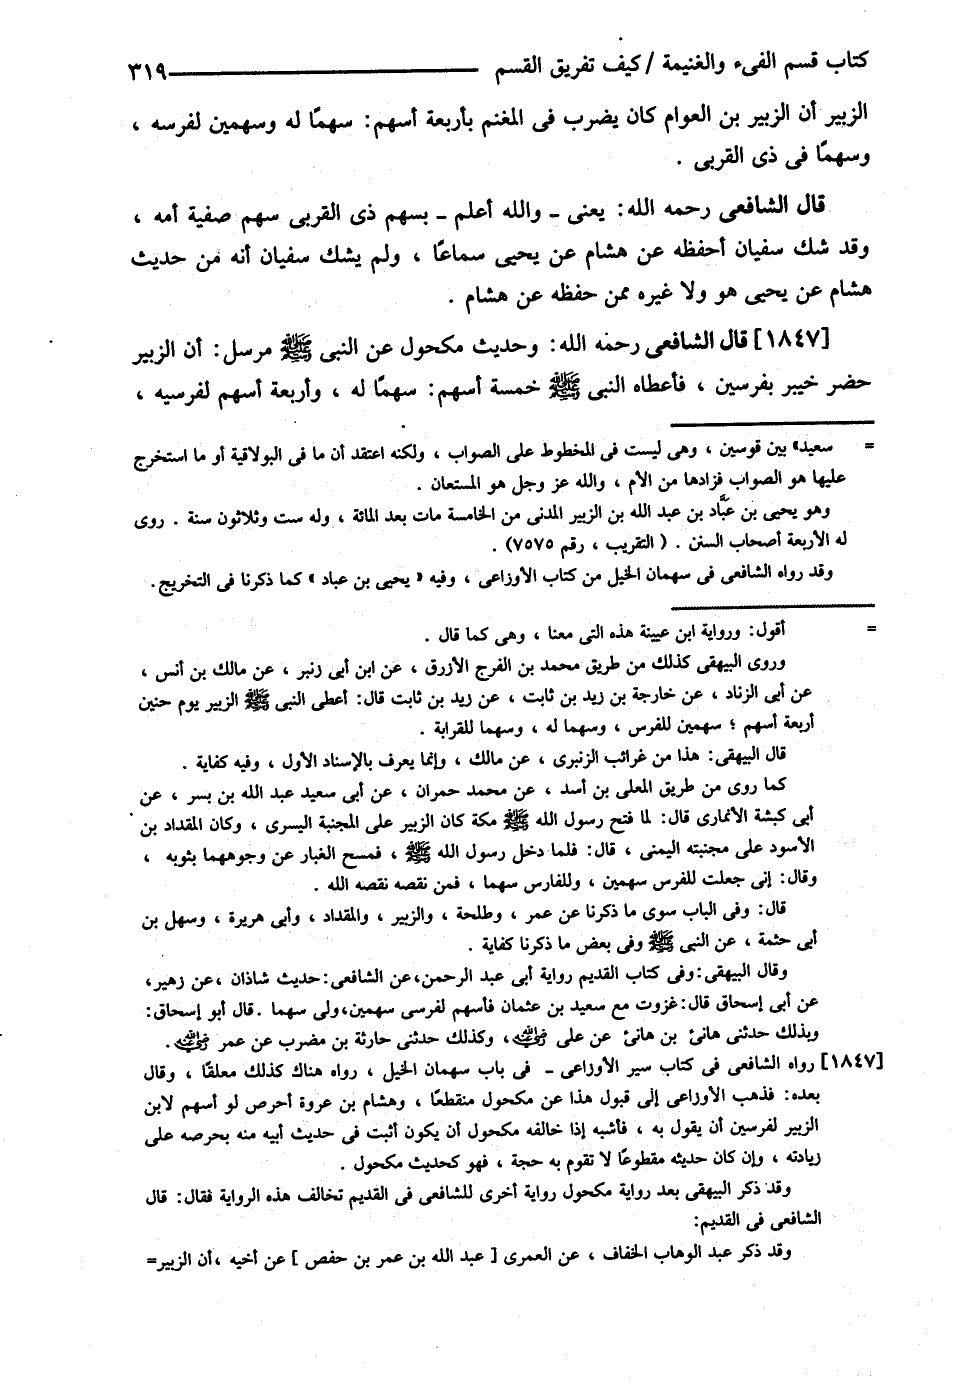 كتاب قسم الفىء والغنيمة / كيف تفريق القسم ـــــــــ ٣١٩
الزبير أن الزبير بن العوام كان يضرب فى المغنم بأربعة أسهم: سهمًا له وسهمين لفرسه ،
وسهمًا فى ذى القربى .
قال الشافعى رحمه الله: يعنى ـ والله أعلم ـ بسهم ذى القربى سهم صفية أمه ،
وقد شك سفيان أحفظه عن هشام عن يحيى سماعًا ، ولم يشك سفيان أنه من حديث
هشام عن يحيى هو ولا غيره ممن حفظه عن هشام .
[١٨٤٧] قال الشافعى رحمه الله: وحديث مكحول عن النبى ﷺ مرسل: أن الزبير
حضر خيبر بفرسين ، فأعطاه النبى ﷺ خمسة أسهم: سهمًا له ، وأربعة أسهم لفرسيه ،
= سعيد» بين قوسين ، وهى ليست فى المخطوط على الصواب ، ولكنه اعتقد أن ما فى البولاقية أو ما استخرج
عليها هو الصواب فزادها من الأم ، والله عز وجل هو المستعان .
وهو يحيى بن عبَّاد بن عبد الله بن الزبير المدنى من الخامسة مات بعد المائة ، وله ست وثلاثون سنة . روى
له الأربعة أصحاب السنن . ( التقريب ، رقم ٧٥٧٥) .
وقد رواه الشافعى فى سهمان الخيل من كتاب الأوزاعى ، وفيه « يحيى بن عباد » كما ذكرنا فى التخريج .
= أقول: ورواية ابن عيينة هذه التى معنا ، وهى كما قال .
وروى البيهقى كذلك من طريق محمد بن الفرج الأزرق ، عن ابن أبى زنبر ، عن مالك بن أنس ،
عن أبى الزناد ، عن خارجة بن زيد بن ثابت ، عن زيد بن ثابت قال: أعطى النبى ﷺ الزبير يوم حنين
أربعة أسهم ؛ سهمين للفرس ، وسهما له ، وسهما للقرابة .
قال البيهقى: هذا من غرائب الزنبرى ، عن مالك ، وإنما يعرف بالإسناد الأول ، وفيه كفاية .
كما روى من طريق المعلى بن أسد ، عن محمد حمران ، عن أبى سعيد عبد الله بن بسر ، عن
أبى كبشة الأنمارى قال: لما فتح رسول الله ﷺ مكة كان الزبير على المجنبة اليسرى ، وكان المقداد بن
الأسود على مجنبته اليمنى ، قال: فلما دخل رسول الله ﷺ ، فمسح الغبار عن وجوههما بثوبه ،
وقال: إنى جعلت للفرس سهمين ، وللفارس سهما ، فمن نقصه نقصه الله .
قال: وفى الباب سوى ما ذكرنا عن عمر ، وطلحة ، والزبير ، والمقداد ، وأبى هريرة ، وسهل بن
أبى حثمة ، عن النبى ﷺ وفى بعض ما ذكرنا كفاية .
وقال البيهقى:وفى كتاب القديم رواية أبى عبد الرحمن،عن الشافعى:حديث شاذان ،عن زهير،
عن أبى إسحاق قال:غزوت مع سعيد بن عثمان فأسهم لفرسى سهمين،ولى سهما .قال أبو إسحاق:
وبذلك حدثنى هانئ بن هانئ عن على رضي الله عنه ، وكذلك حدثنى حارثة بن مضرب عن عمر رضي الله عنه .
[١٨٤٧] رواه الشافعى فى كتاب سير الأوزاعى ـ فى باب سهمان الخيل ، رواه هناك كذلك معلقًا ، وقال
بعده: فذهب الأوزاعى إلى قبول هذا عن مكحول منقطعًا ، وهشام بن عروة أحرص لو أسهم لابن
الزبير لفرسين أن يقول به ، فأشبه إذا خالفه مكحول أن يكون أثبت فى حديث أبيه منه بحرصه على
زيادته ، وإن كان حديثه مقطوعًا لا تقوم به حجة ، فهو كحديث مكحول .
وقد ذكر البيهقى بعد رواية مكحول رواية أخرى للشافعى فى القديم تخالف هذه الرواية فقال: قال
الشافعى فى القديم:
وقد ذكر عبد الوهاب الخفاف ، عن العمرى [ عبد الله بن عمر بن حفص ] عن أخيه ،أن الزبير=